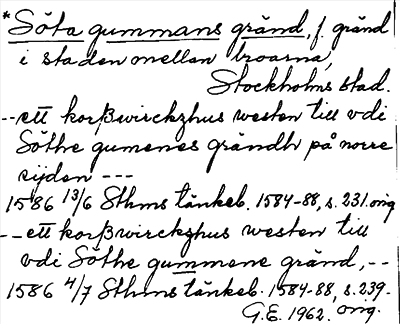 *Söta gummans gränd, f. gränd
i staden mellan broarna,
Stockholms stad.
--ett korßwirckzhus westen till vdi
Söthe gumenes grändh på norre
sijden ---
1586 13/6 Sthms tänkeb. 1584-88, s. 231. orig
--ett korßwirckzhus westen till
vdi Söthe gummene gränd, --
1586 4/7 Sthms tänkeb. 1584-88, s. 239.
G.E. 1962. orig.